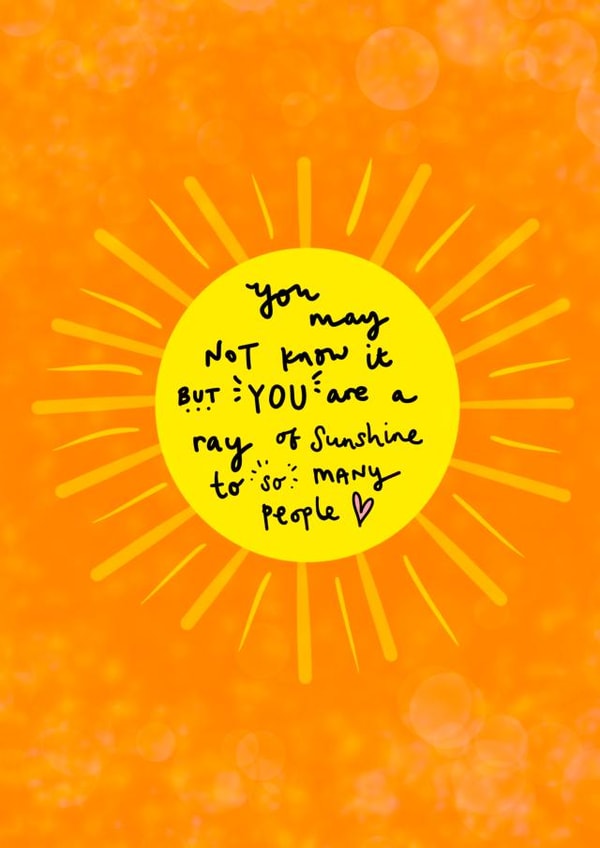 You
may
NOT know it
BUT YOU are a
ray of Sunshine
to so MANY
people